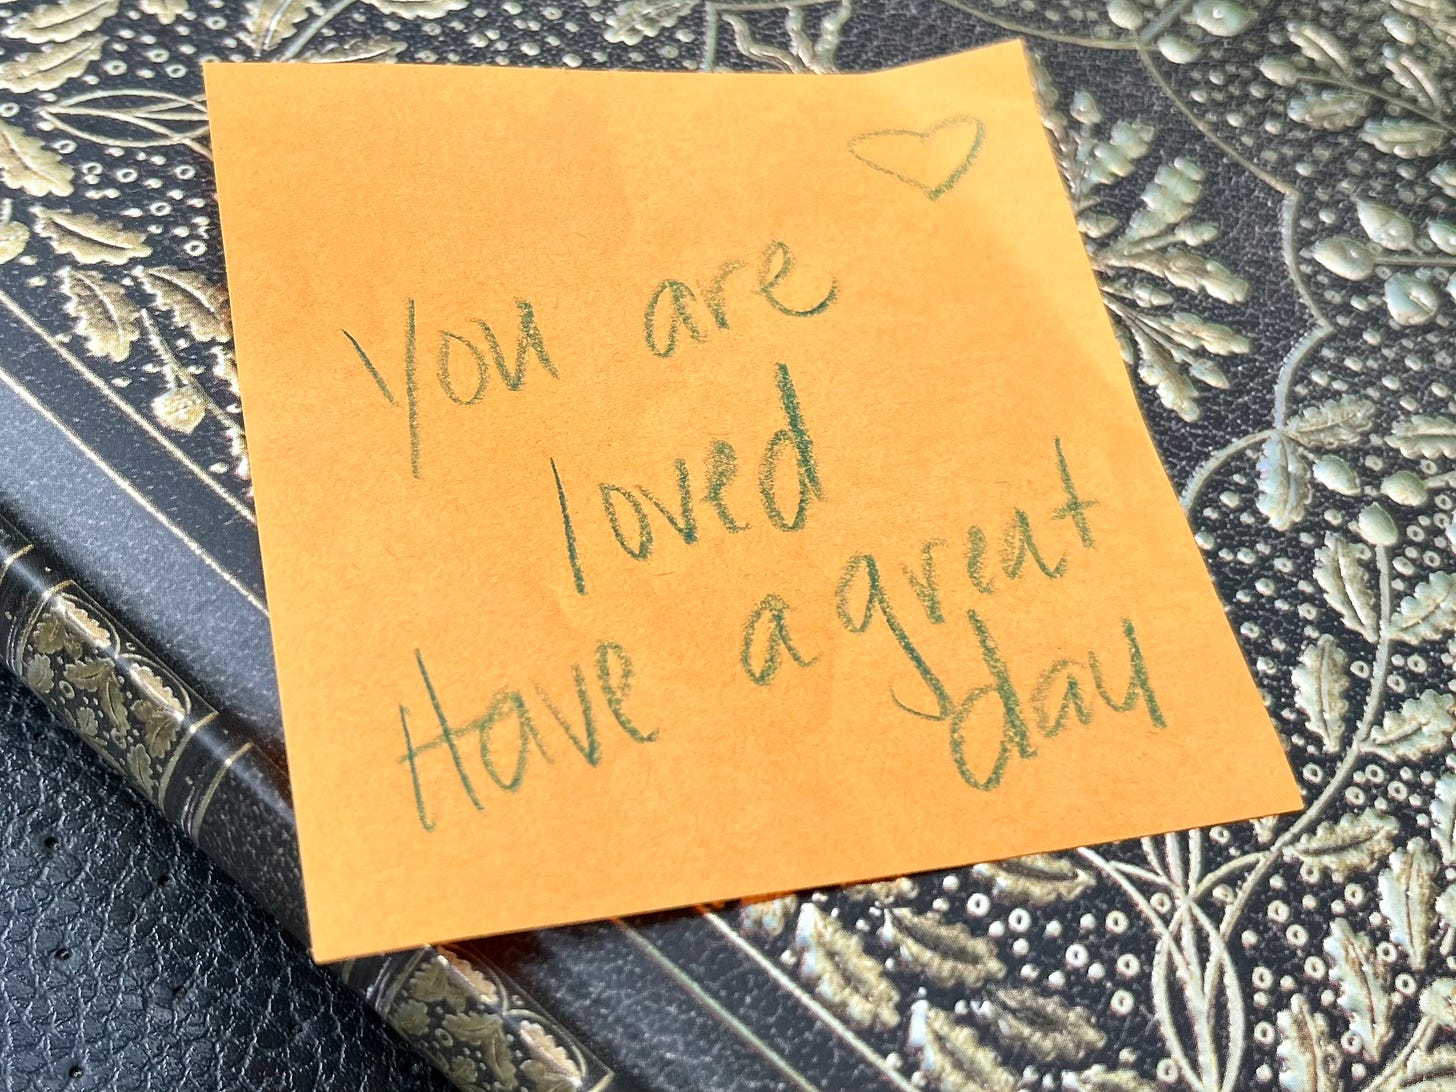 You are
loved
Have a great
day